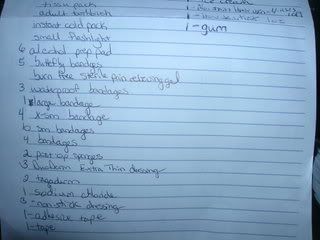 tissue pack
adult toothbrush
instant cold pack
small flashlight
6 alcohol prep pad
5 butterfly bandages
burn free sterile pain relieving gel
3 waterproof bandages
1 large bandage
4 x-sm bandage
6 sm bandages
4 bandages
2 post op sponges
3 Duoderm Extra Thin dressing
2 tegaderm
1-sodium chloride
3-non stick dressing
1-adhesive tape
1-tape
1-gum